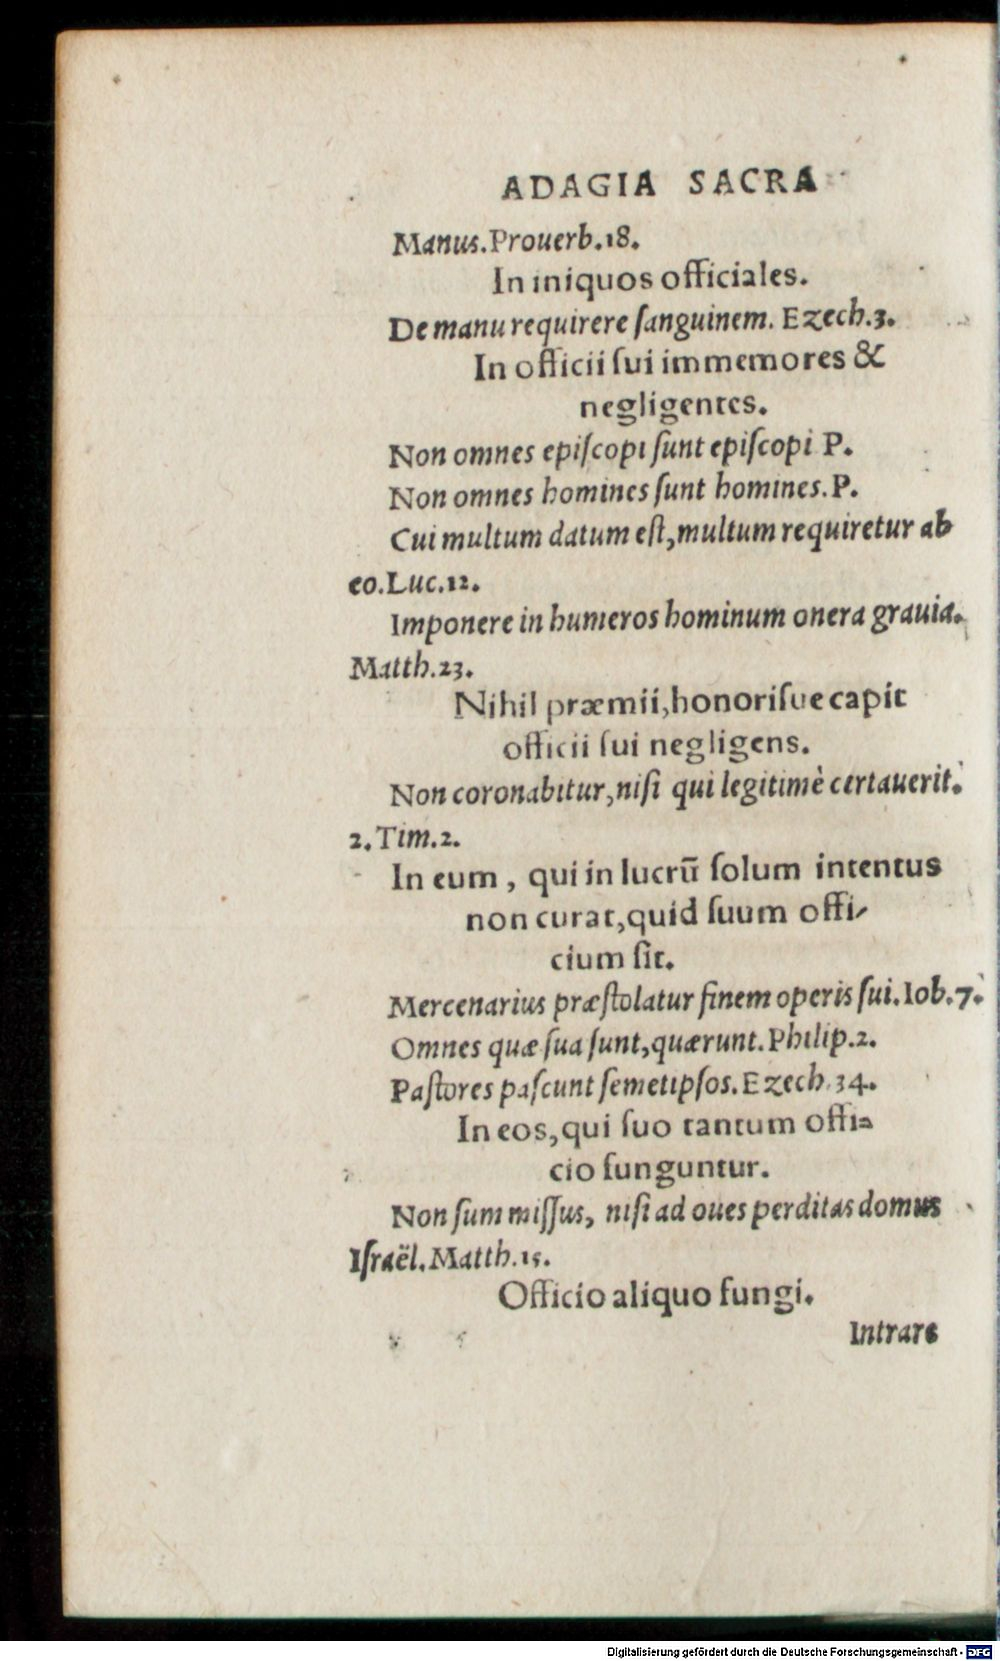 ADAGIA SACRA
Manus. Prouerb.18.
In iniquos officiales.
De manu requirere ſanguinem. Ezech.3.
In officii ſui immemores &
negligentes.
Non omnes epiſcopi ſunt epiſcopi P.
Non omnes homines ſunt homines. P.
Cui multum datum eſt, multum requiretur ab
eo. Luc.12.
Imponere in humeros hominum onera grauia.
Matth.23.
Nihil præmii, honoriſue capit
officii ſui negligens.
Non coronabitur, niſi qui legitimè certauerit.
2. Tim.2.
In eum, qui in lucrū ſolum intentus
non curat, quid ſuum offi-
cium ſit.
Mercenarius præſtolatur finem operis ſui. Iob.7.
Omnes quæ ſua ſunt, quærunt. Philip.2.
Paſtores paſcunt ſemetipſos. Ezech.34.
In eos, qui ſuo tantum offi=
cio funguntur.
Non ſum miſſus, niſi ad oues perditas domus
Iſraël. Matth.15.
Officio aliquo fungi.
Intrare
Digitalisierung gefördert durch die Deutsche Forschungsgemeinschaft - DFG